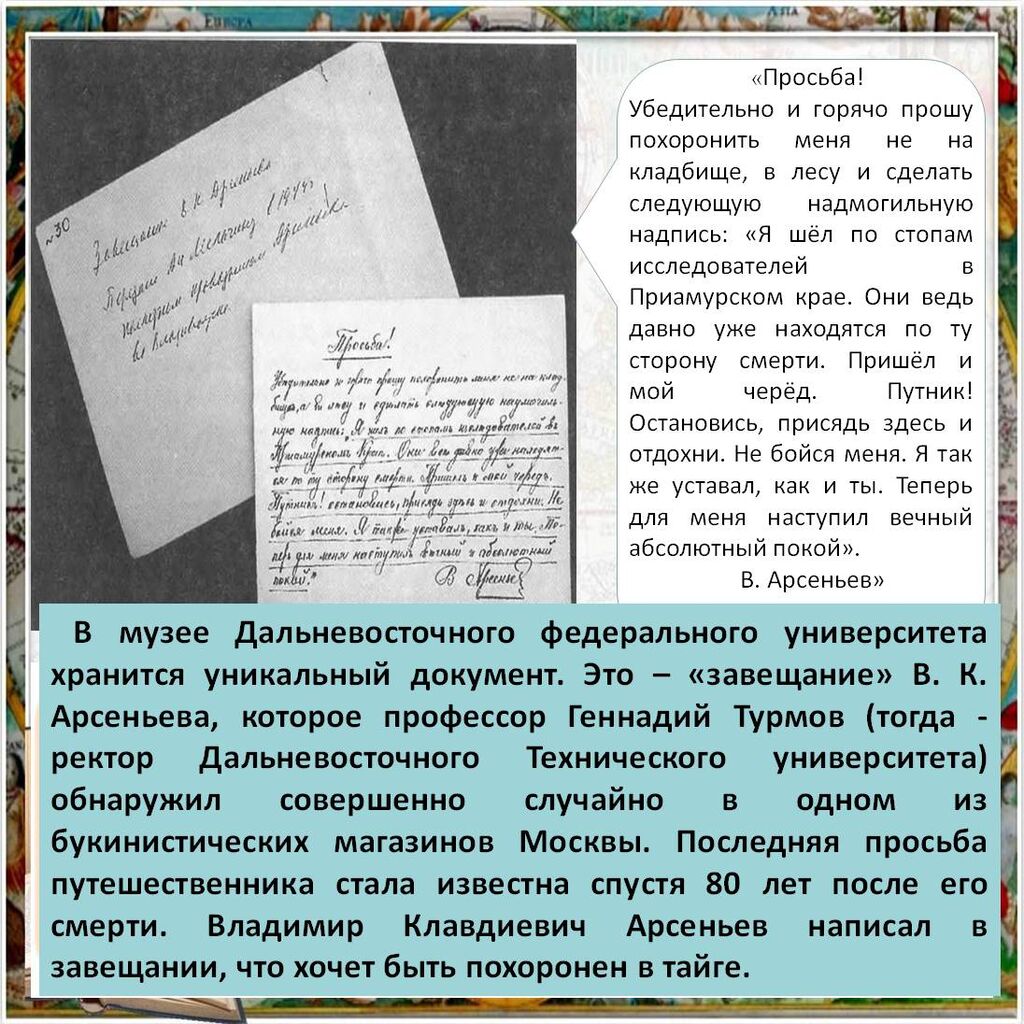 EUROPA
ASIA
№30
Завещание В К Арсеньева
Просьба!
Убедительно и горячо прошу похоронить меня не на клад-
бище, а в лесу и сделать следующую надмогиль-
ную надпись: „Я шел по стопам исследователей в
Приамурском Крае. Они ведь давно уже находят-
ся по ту сторону смерти. Пришел и мой чередъ.
Путникъ! остановись, присядь здесь и отдохни. Не
бойся меня. Я также уставалъ, какъ и ты. Те-
перь для меня наступилъ вечный и абсолютный
покой."
В Арсеньев
«Просьба!
Убедительно и горячо прошу
похоронить меня не на
кладбище, в лесу и сделать
следующую надмогильную
надпись: «Я шёл по стопам
исследователей в
Приамурском крае. Они ведь
давно уже находятся по ту
сторону смерти. Пришёл и
мой черёд. Путник!
Остановись, присядь здесь и
отдохни. Не бойся меня. Я так
же уставал, как и ты. Теперь
для меня наступил вечный
абсолютный покой».
В. Арсеньев»
В музее Дальневосточного федерального университета
хранится уникальный документ. Это – «завещание» В. К.
Арсеньева, которое профессор Геннадий Турмов (тогда -
ректор Дальневосточного Технического университета)
обнаружил совершенно случайно в одном из
букинистических магазинов Москвы. Последняя просьба
путешественника стала известна спустя 80 лет после его
смерти. Владимир Клавдиевич Арсеньев написал в
завещании, что хочет быть похоронен в тайге.